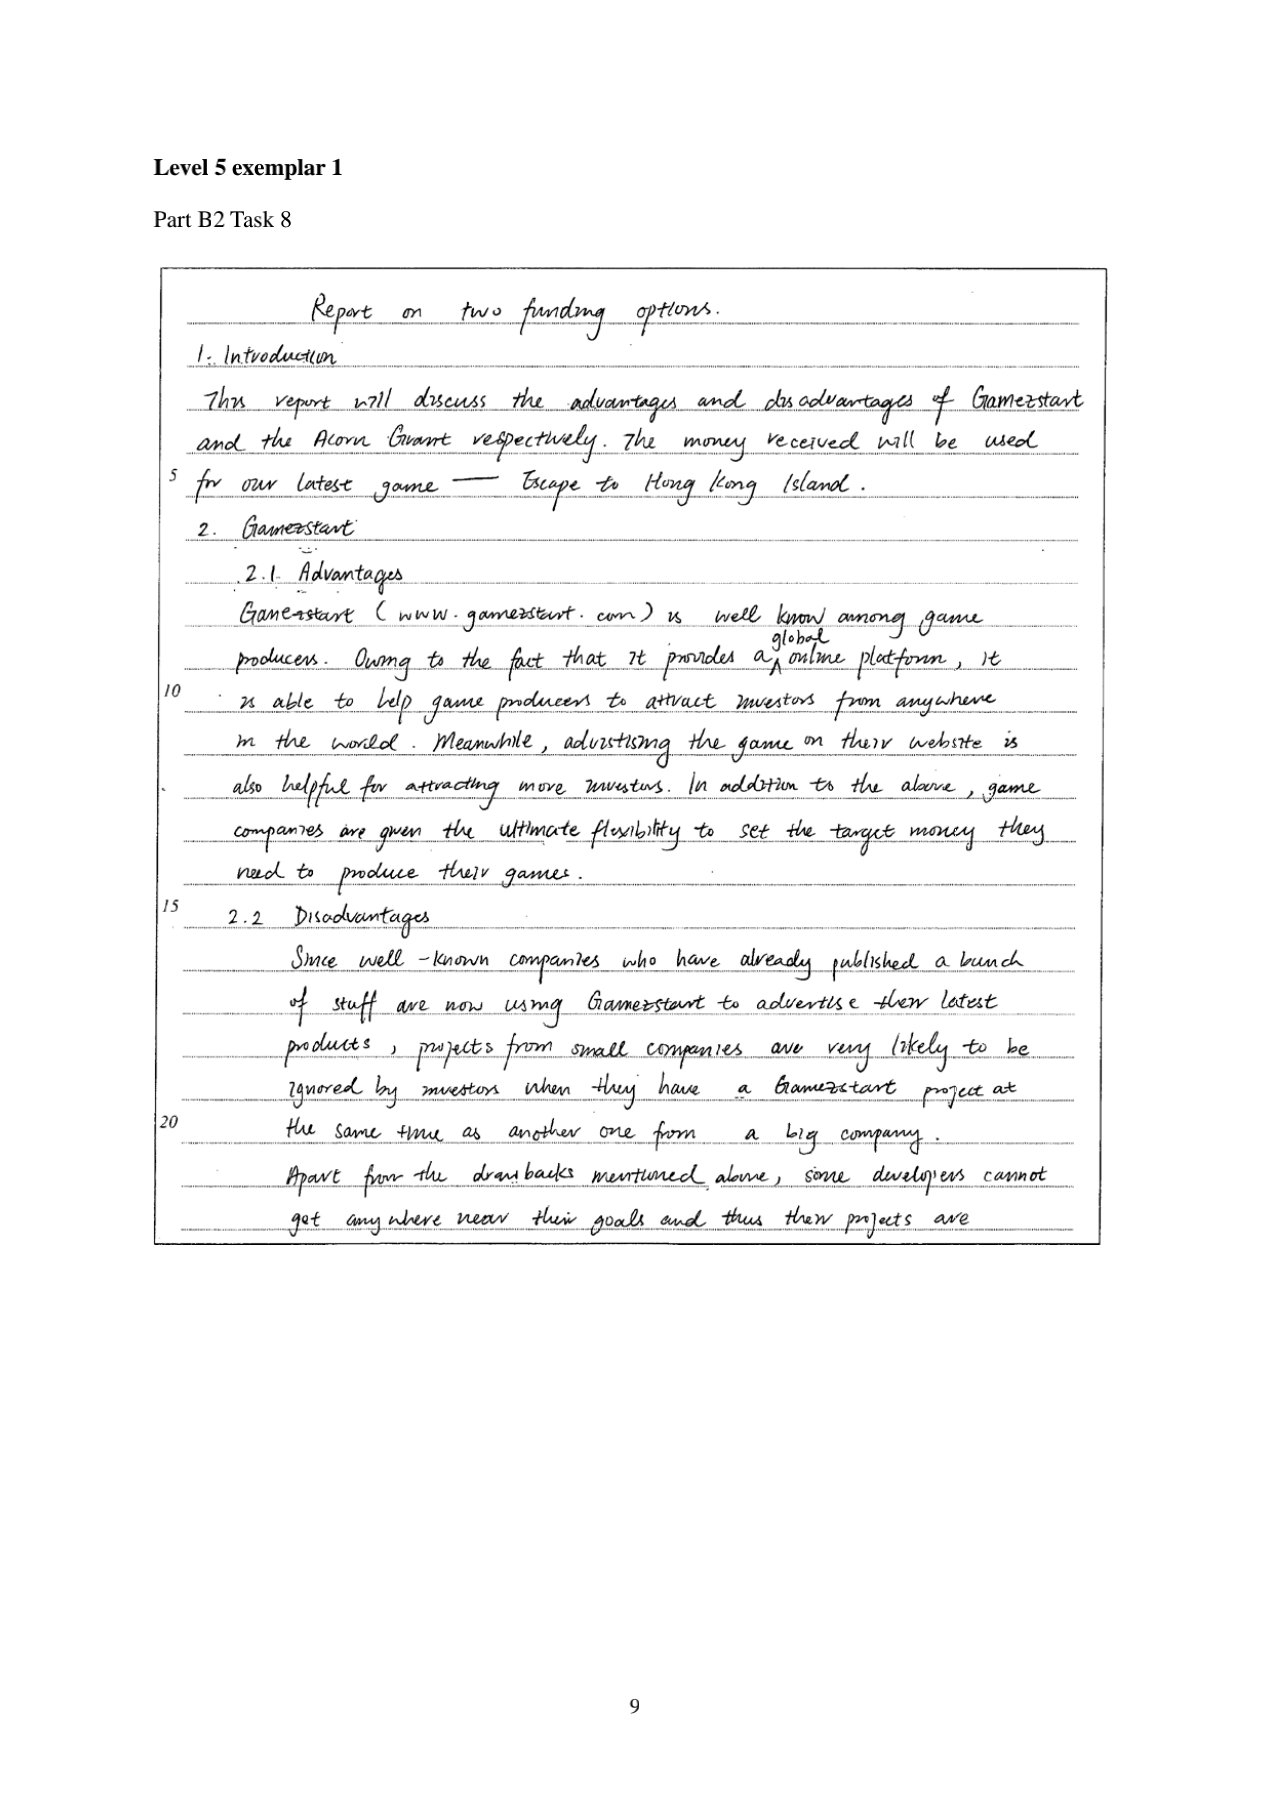 Level 5 exemplar 1
Part B2 Task 8
Report on two funding options.
1. Introduction
This report will discuss the advantages and disadvantages of Gamezstart
and the Acorn Grant respectively. The money received will be used
5 for our latest game — Escape to Hong Kong Island.
2. Gamezstart
2.1 Advantages
Gamezstart (www.gamezstart.com) is well know among game
producers. Owing to the fact that it provides a global online platform, it
10 is able to help game producers to attract investors from anywhere
in the world. Meanwhile, advistising the game on their website is
also helpful for attracting more investors. In addition to the above, game
companies are given the ultimate flexibility to set the target money they
need to produce their games.
15 2.2 Disadvantages
Since well-known companies who have already published a bunch
of stuff are now using Gamezstart to advertise their latest
products, projects from small companies are very likely to be
ignored by investors when they have a Gamezstart project at
20 the same time as another one from a big company.
Apart from the drawbacks mentioned above, some developers cannot
get anywhere near their goals and thus their projects are
9